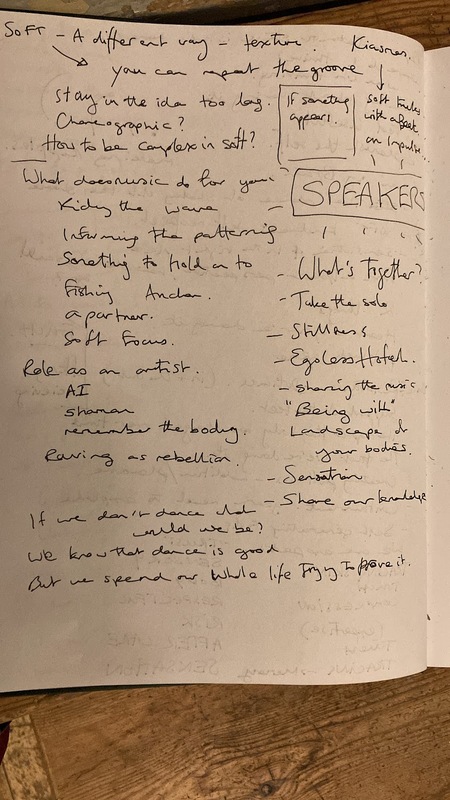 SOFT - A different way - texture.
you can repeat the groove
Stay in the idea too long.
Choreographic?
How to be complex in soft?
Kiasmos.
If something
appears...
soft
with affect
an impulse...
SPEAKERS
What does music do for you?
Riding the wave
Informing the patterning
Something to hold on to
Fishing Anchor.
a partner.
Soft Focus.
Role as an artist.
AI
shaman
remember the body.
Raving as rebellion.
- What's Together?
- Take the solo
- Stillness
- Egoless Hotel.
- sharing the music
"Being with"
Landscape of
your bodies.
- Sensation
- Share our knowledge
If we don't dance who
would we be?
We know that dance is good
But we spend our whole life trying to prove it.